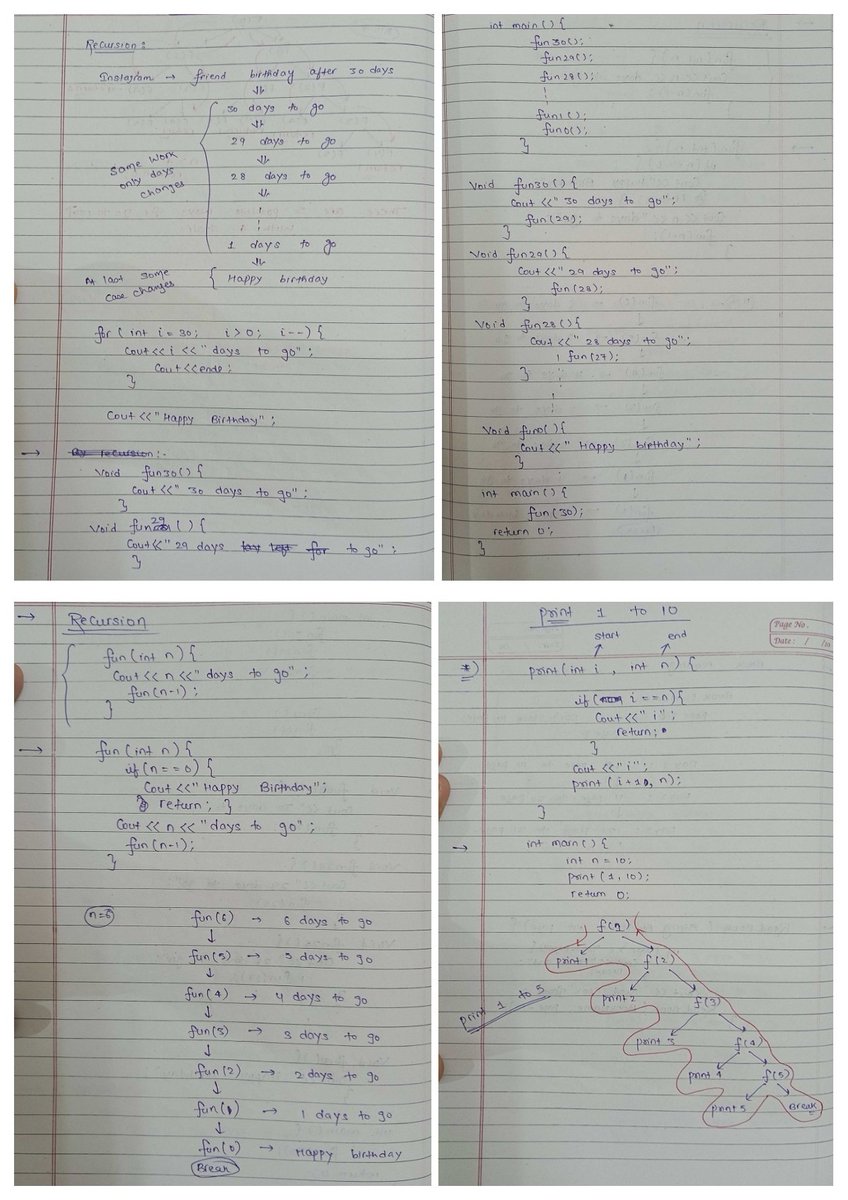 Recursion:
Instagram → friend birthday after 30 days
30 days to go
29 days to go
28 days to go
1 days to go
Same work
only days
changes
At last some
case changes
Happy birthday
for ( int i = 30; i > 0; i--) {
Cout << i << " days to go" ;
Cout << endl;
}
Cout << "Happy Birthday" ;
→ By recursion:-
Void fun30() {
Cout << " 30 days to go" ;
}
Void fun29() {
Cout << " 29 days to go" ;
}
int main() {
fun30();
fun29();
fun28();
fun1();
fun0();
}
Void fun30() {
Cout << " 30 days to go" ;
fun(29);
}
Void fun29() {
Cout << " 29 days to go" ;
fun(28);
}
Void fun28() {
Cout << " 28 days to go" ;
fun(27);
}
Void fun0() {
Cout << " Happy birthday" ;
}
int main() {
fun(30);
return 0;
}
→ Recursion
fun(int n) {
Cout << n << " days to go" ;
fun(n-1) ;
}
→ fun (int n) {
if (n == 0) {
Cout << "Happy Birthday";
return; }
Cout << n << "days to go" ;
fun(n-1);
}
n=6
fun(6) → 6 days to go
fun(5) → 5 days to go
fun(4) → 4 days to go
fun(3) → 3 days to go
fun(2) → 2 days to go
fun(1) → 1 days to go
fun(0) → Happy birthday
Break
print 1 to 10
Page No.
Date: / /
start end
*) print (int i , int n) {
if ( i == n) {
Cout << " i" ;
return;
}
Cout << " i" ;
print (i+1, n);
}
→ int main() {
int n = 10;
print (1, 10);
return 0;
print 1 to 5
f(1)
print 1 f(2)
print 2 f(3)
print 3 f(4)
print 4 f(5)
print 5 Break